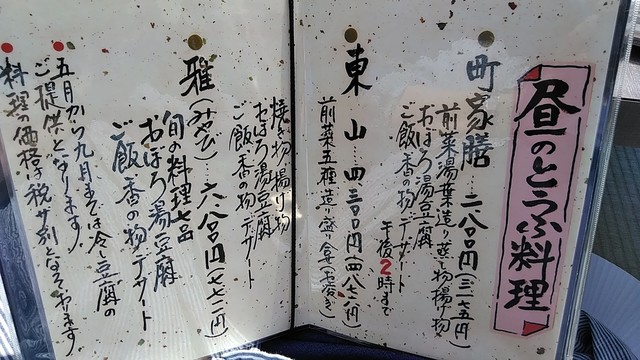 昼のとうふ料理
町家膳 二八〇〇円(三一七五円)
前菜湯葉造り蒸し物揚げ物
おぼろ湯豆腐
ご飯香の物デザート
午後2時まで
東山 四三〇〇円(四八七六円)
前菜五種造り盛り合せ(お造り)
焼き物揚げ物
おぼろ湯豆腐
ご飯香の物デザート
雅(みやび) 六八〇〇円(七七一一円)
旬の料理七品
おぼろ湯豆腐
ご飯香の物デザート
五月から九月までは冷し豆腐の
ご提供となります。
料理の価格は税サ別となっております。